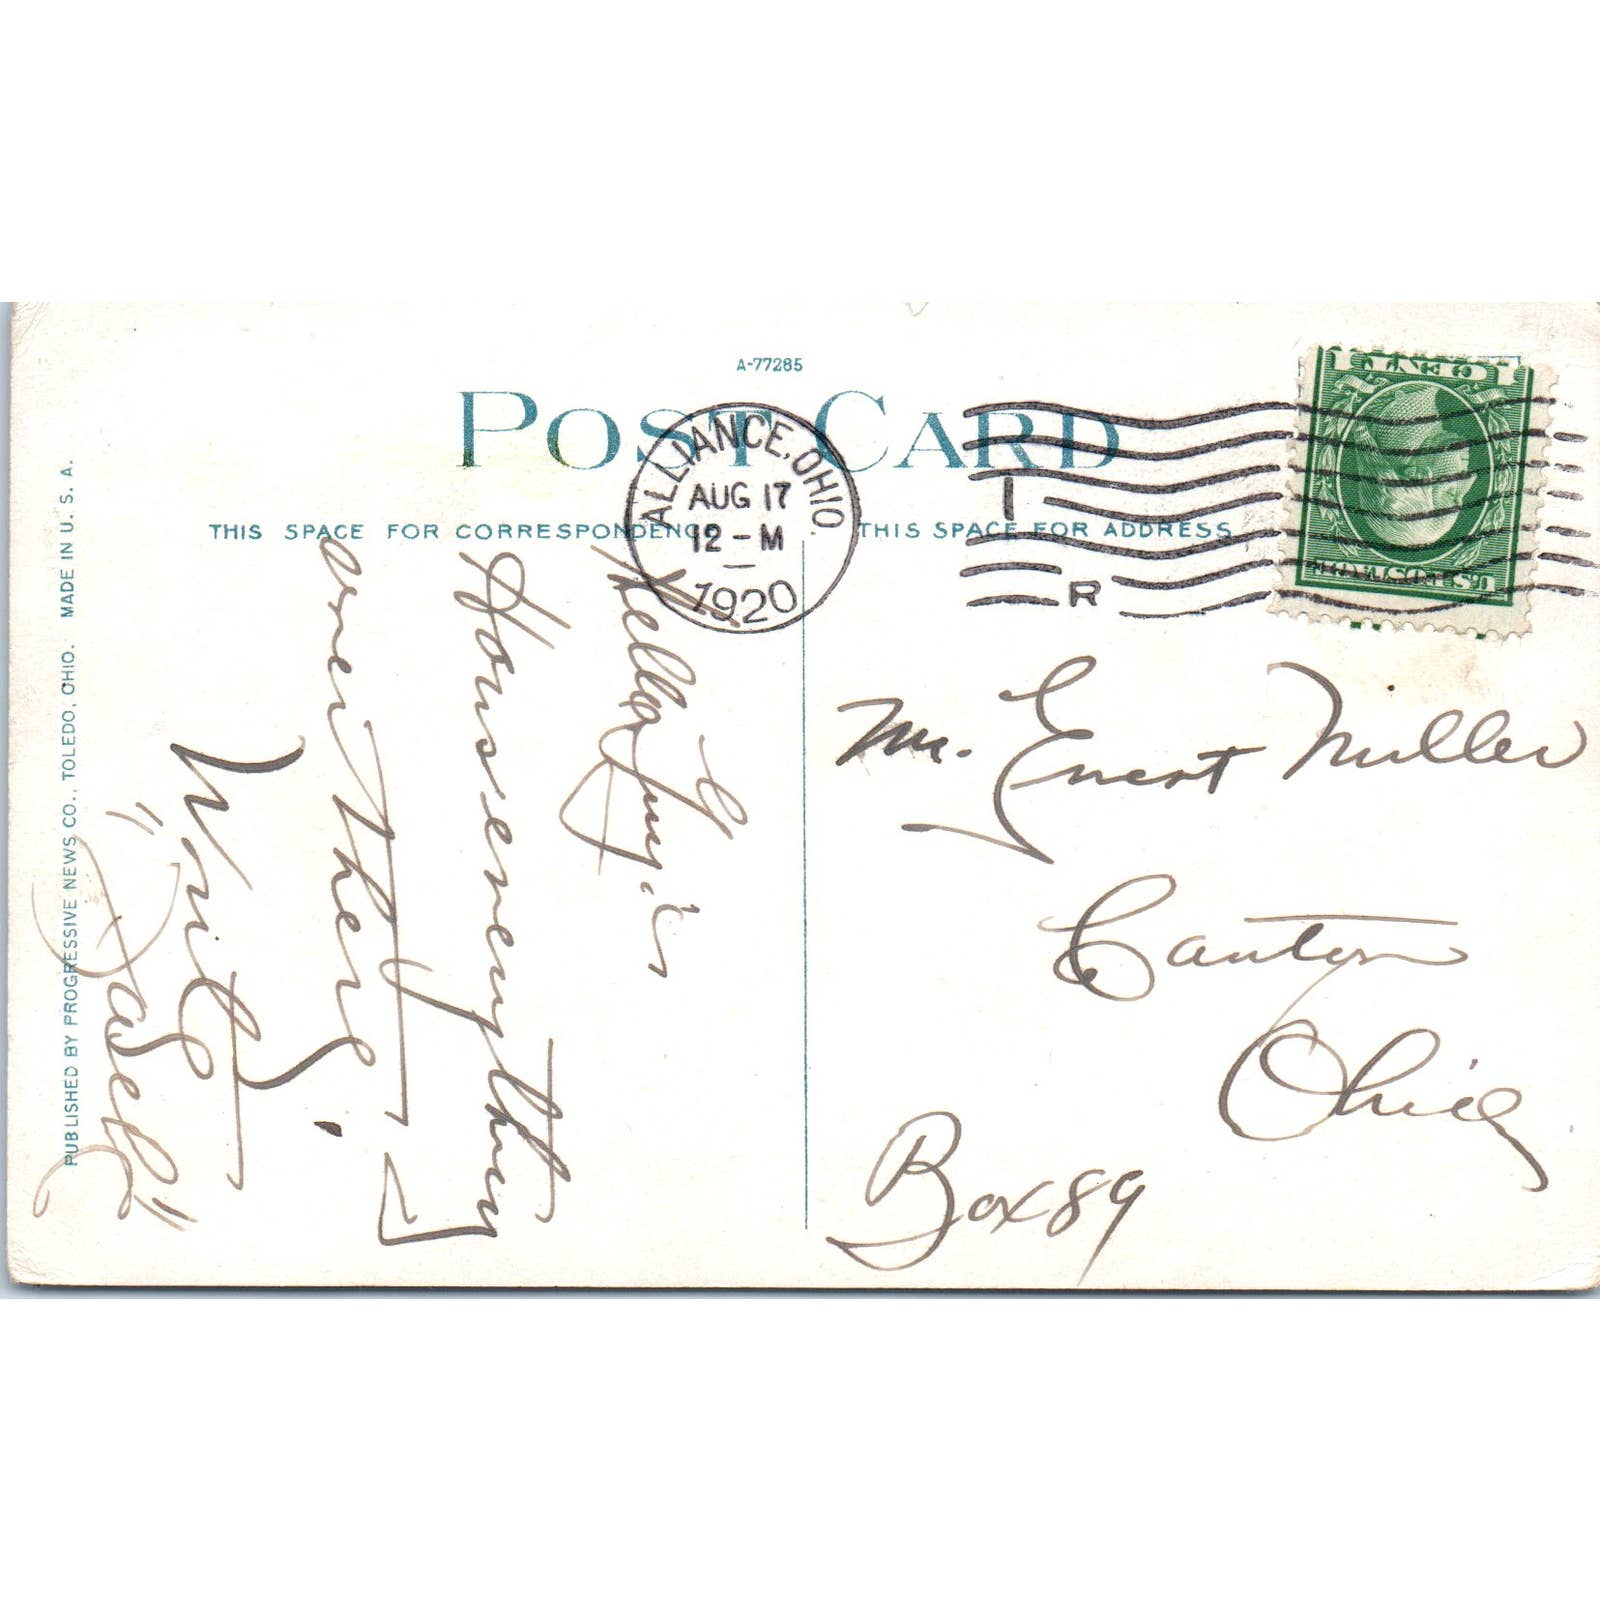 A-77285
POST CARD
THIS SPACE FOR CORRESPONDENCE
THIS SPACE FOR ADDRESS
ALLIANCE, OHIO.
AUG 17
12 - M
1920
1
R
U.S. POSTAGE
1 CENT 1
Hello
Hows everything
over there.
Write
"Dasell"
Mr. Ernest Miller
Canton
Ohio
Box 89
PUBLISHED BY PROGRESSIVE NEWS CO., TOLEDO, OHIO. MADE IN U. S. A.